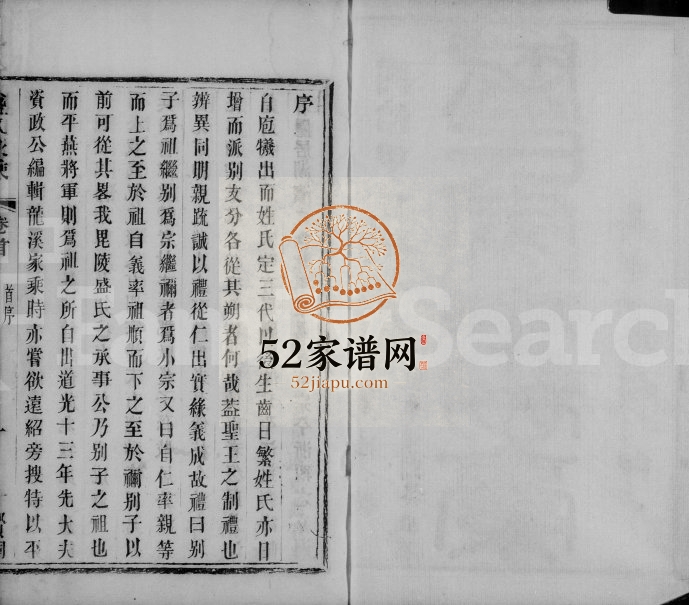 序
自庖犧出而姓氏定三代以生齒日繁姓氏亦日
增而派别支分各從其朔者何哉蓋聖王之制禮也
辨異同明親疏誠以禮從仁出實緣義成故禮曰别
子爲祖繼别爲宗繼禰者爲小宗又曰自仁率親等
而上之至於祖自義率祖順而下之至於禰别子以
前可從其畧我毘陵盛氏之承事公乃别子之祖也
而平燕將軍則爲祖之所自出道光十三年先大夫
資政公編輯龍溪家乘時亦嘗欲遠紹旁搜特以平
卷首
首序
一
52家谱网
52jiapu.com
FamilySearch